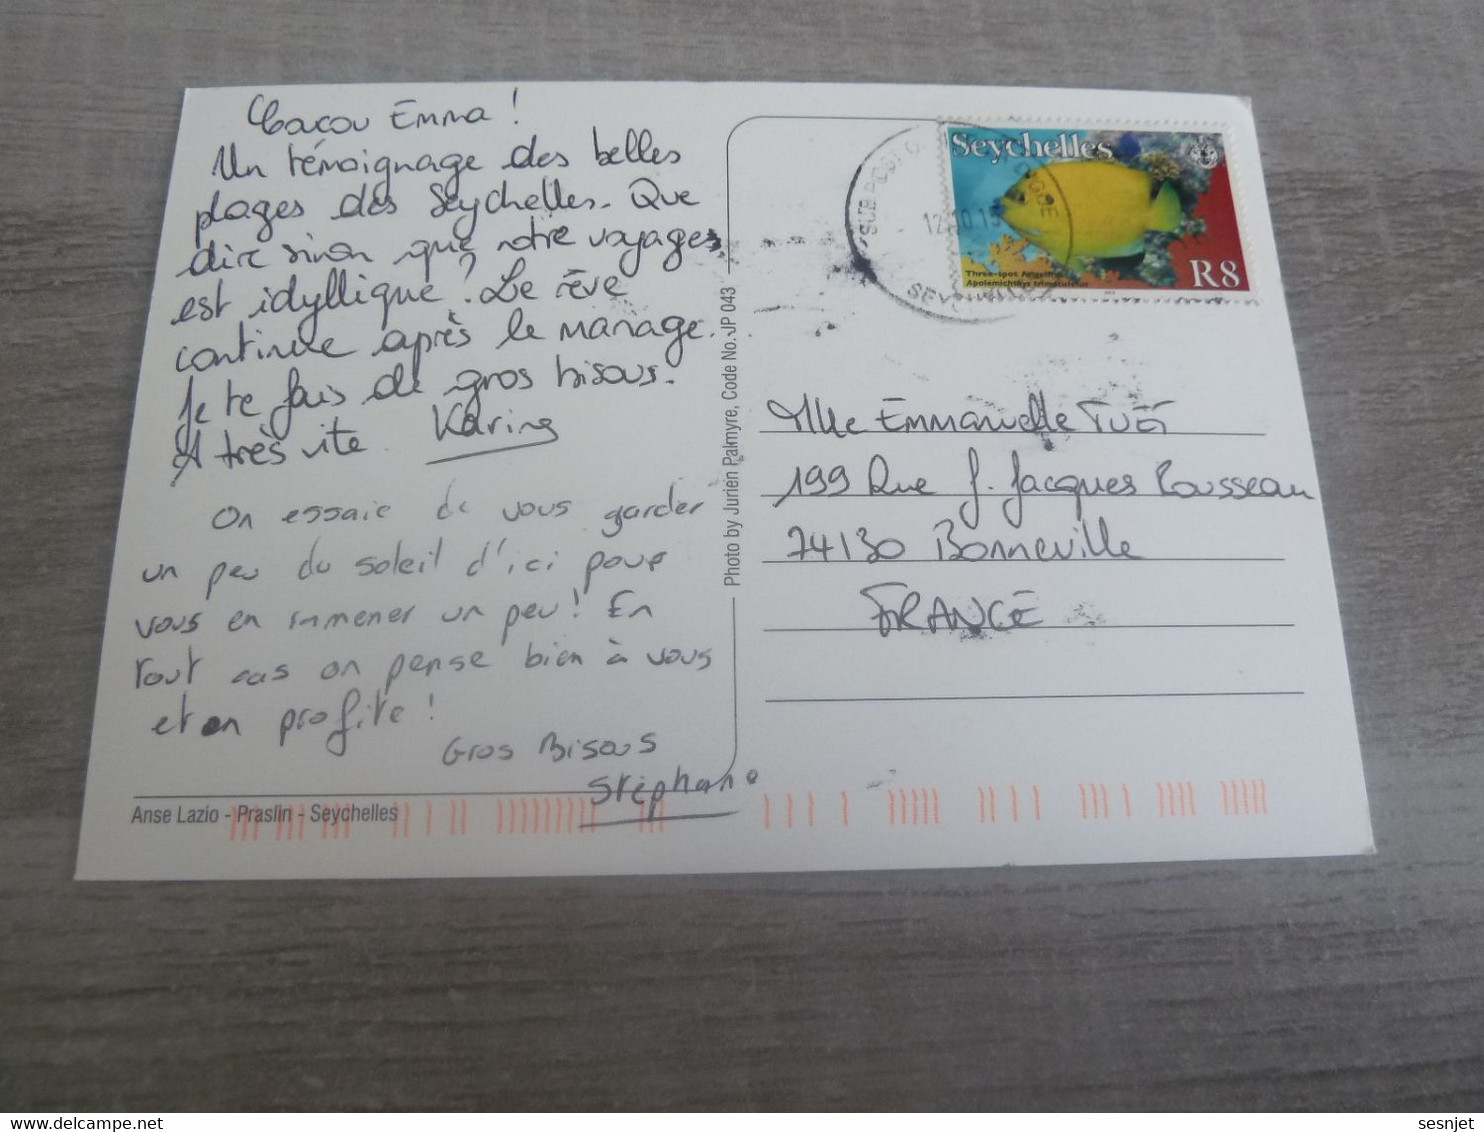 Coucou Emma !
Un témoignage des belles
plages des Seychelles. Que
dire sinon que notre voyages
est idyllique ? Le rêve
continue après le mariage.
Je te fais de gros bisous.
A très vite. Karine
On essaie de vous garder
un peu du soleil d'ici pour
vous en ramener un peu ! En
tout cas on pense bien à vous
et on profite !
Gros Bisous
Stéphane
Anse Lazio - Praslin - Seychelles
Photo by Jurien Palmyre, Code No. JP 043
SUB POST O
12.10.15
SEYCHELLES
Seychelles
Three-spot Angelfish
Apolemichthys trimaculatus
R8
Mlle Emmanuelle
199 Rue J. Jacques Rousseau
74130 Bonneville
FRANCE
sesnjet